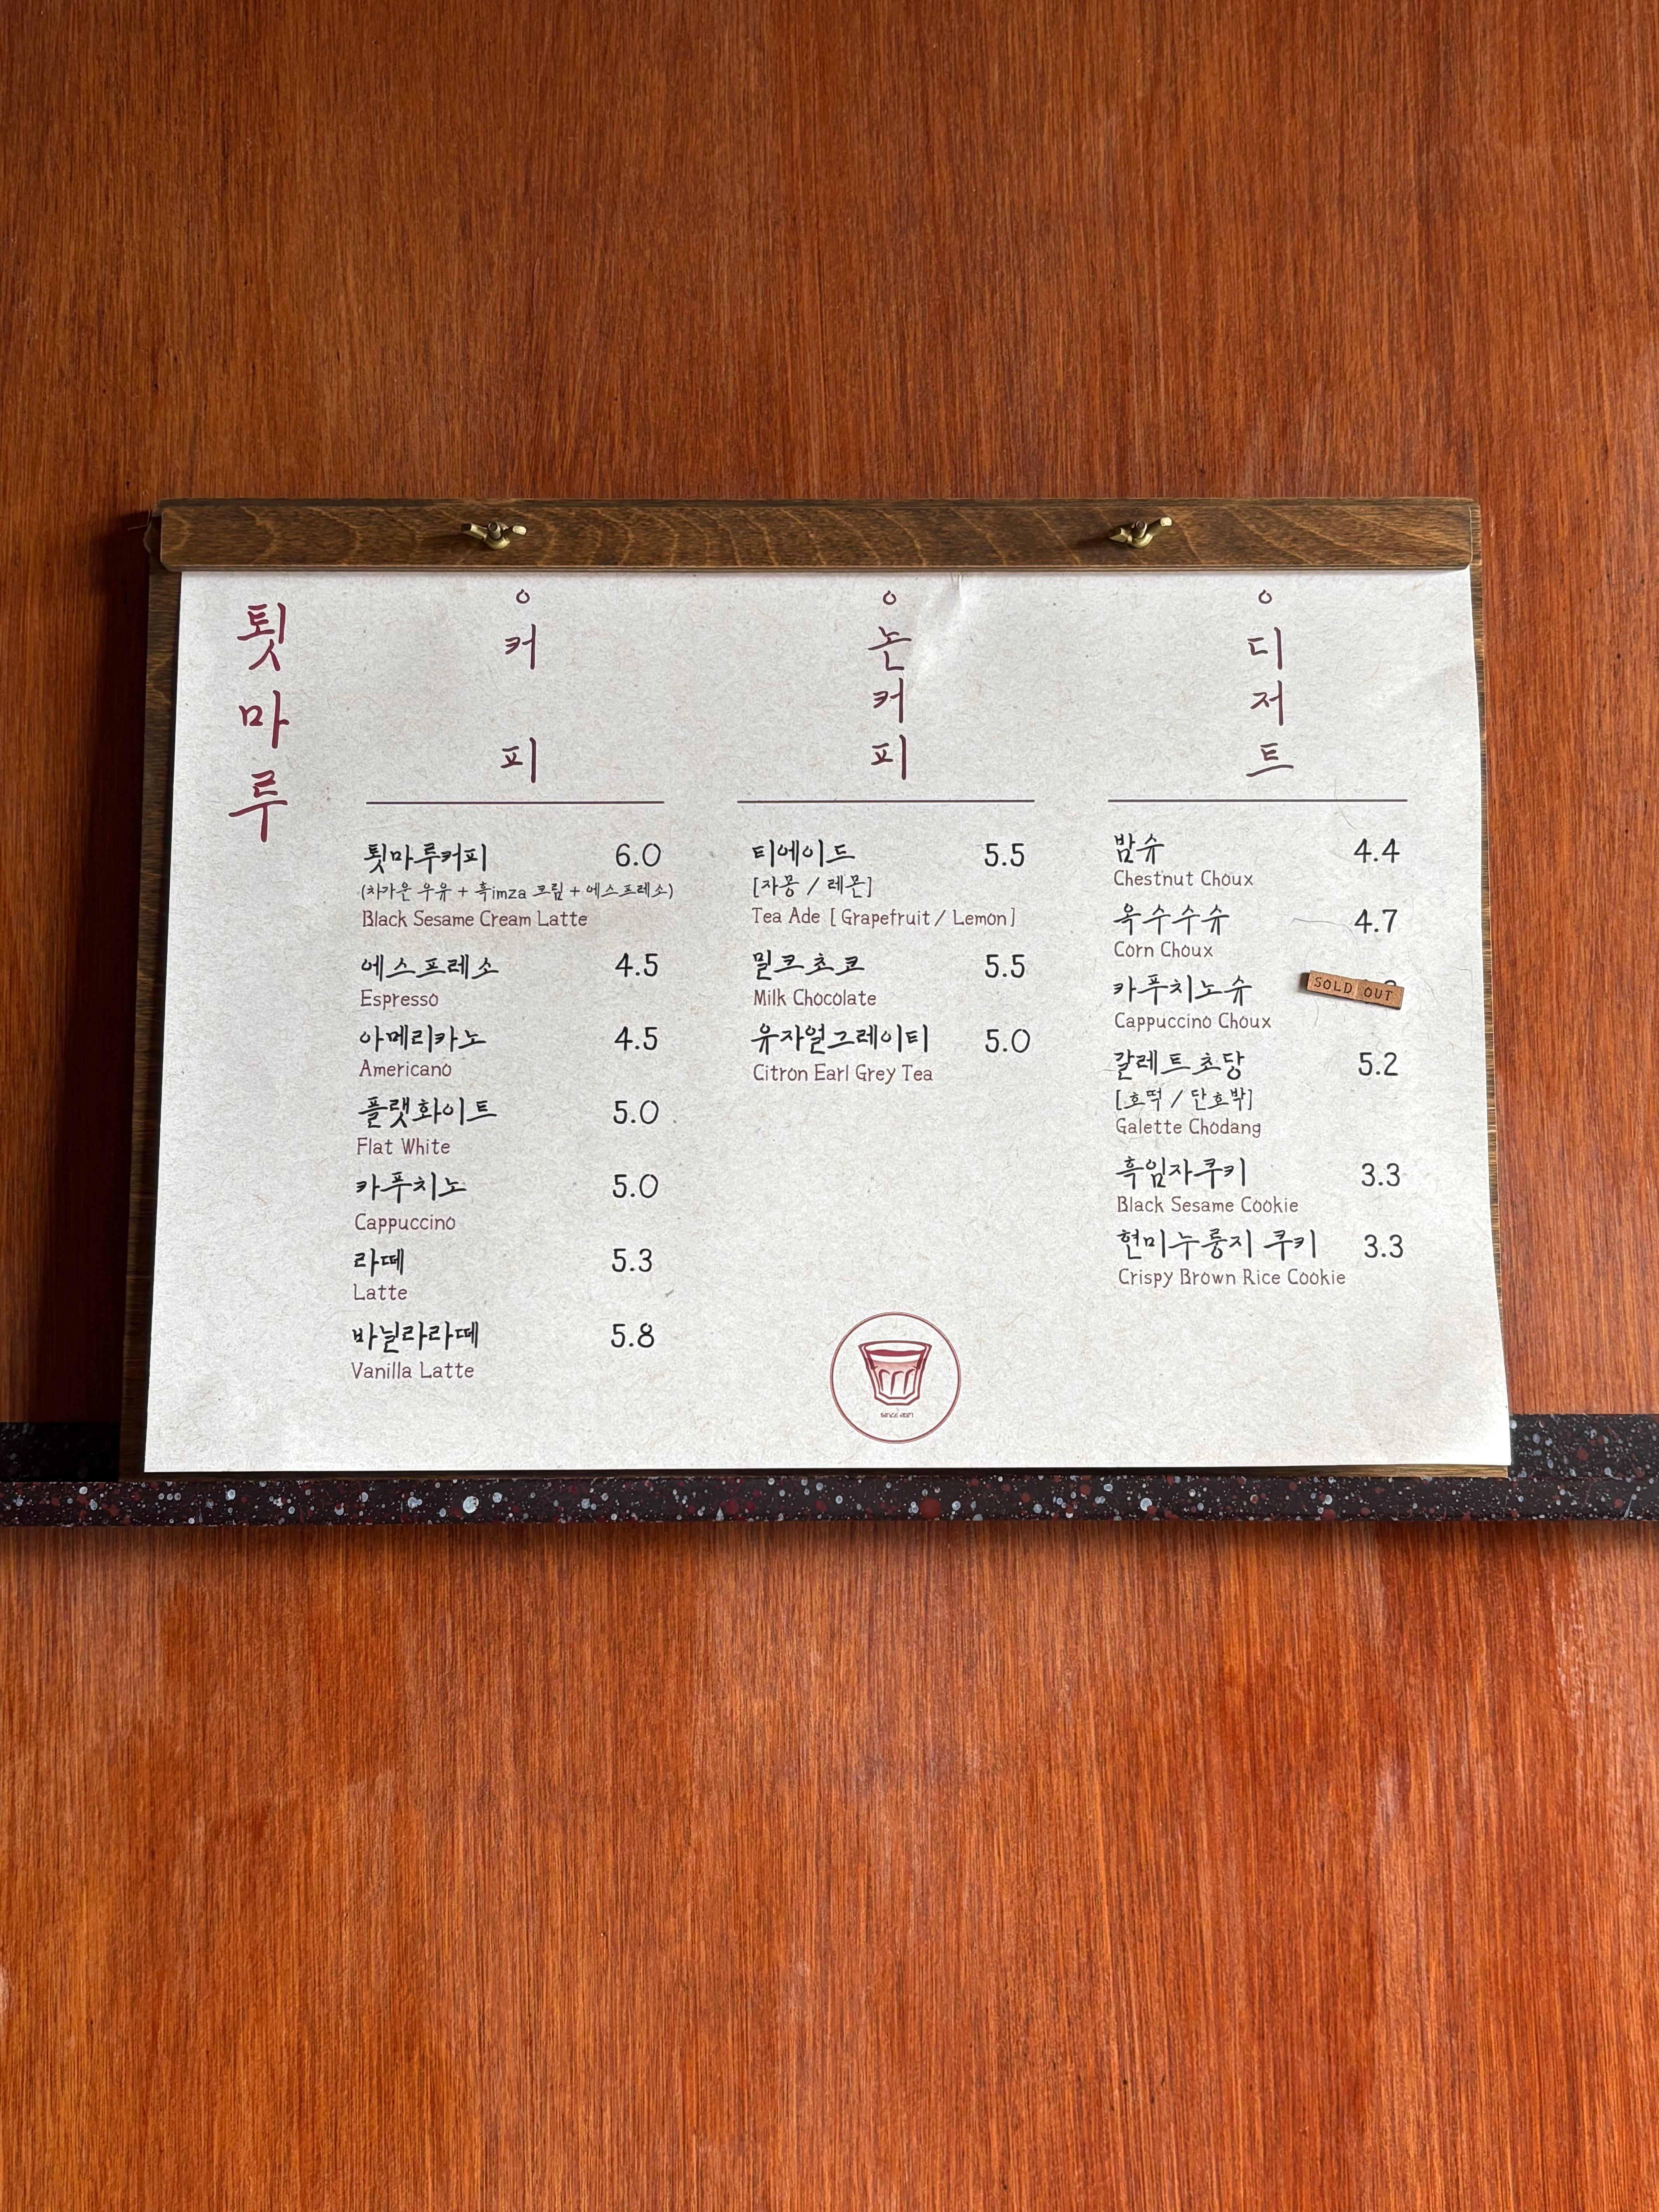 툇마루
커피
툇마루커피 6.0
(차가운 우유 + 흑imza 크림 + 에스프레소)
Black Sesame Cream Latte
에스프레소 4.5
Espresso
아메리카노 4.5
Americano
플랫화이트 5.0
Flat White
카푸치노 5.0
Cappuccino
라떼 5.3
Latte
바닐라라떼 5.8
Vanilla Latte
논커피
티에이드 5.5
[자몽 / 레몬]
Tea Ade [ Grapefruit / Lemon ]
밀크초코 5.5
Milk Chocolate
유자얼그레이티 5.0
Citron Earl Grey Tea
디저트
밤슈 4.4
Chestnut Choux
옥수수슈 4.7
Corn Choux
카푸치노슈 SOLD OUT
Cappuccino Choux
갈레트초당 5.2
[호떡 / 단호박]
Galette Chodang
흑임자쿠키 3.3
Black Sesame Cookie
현미누룽지 쿠키 3.3
Crispy Brown Rice Cookie